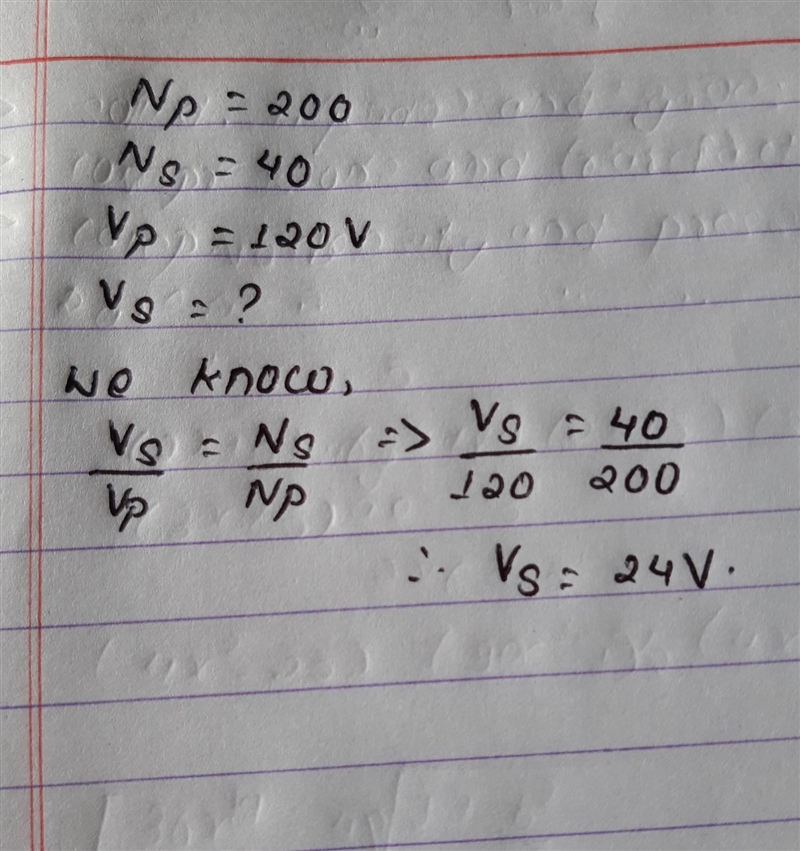 Np = 200
Ns = 40
Vp = 120 V
Vs = ?
We know,
Vs/Vp = Ns/Np => Vs/120 = 40/200
∴ Vs = 24V.